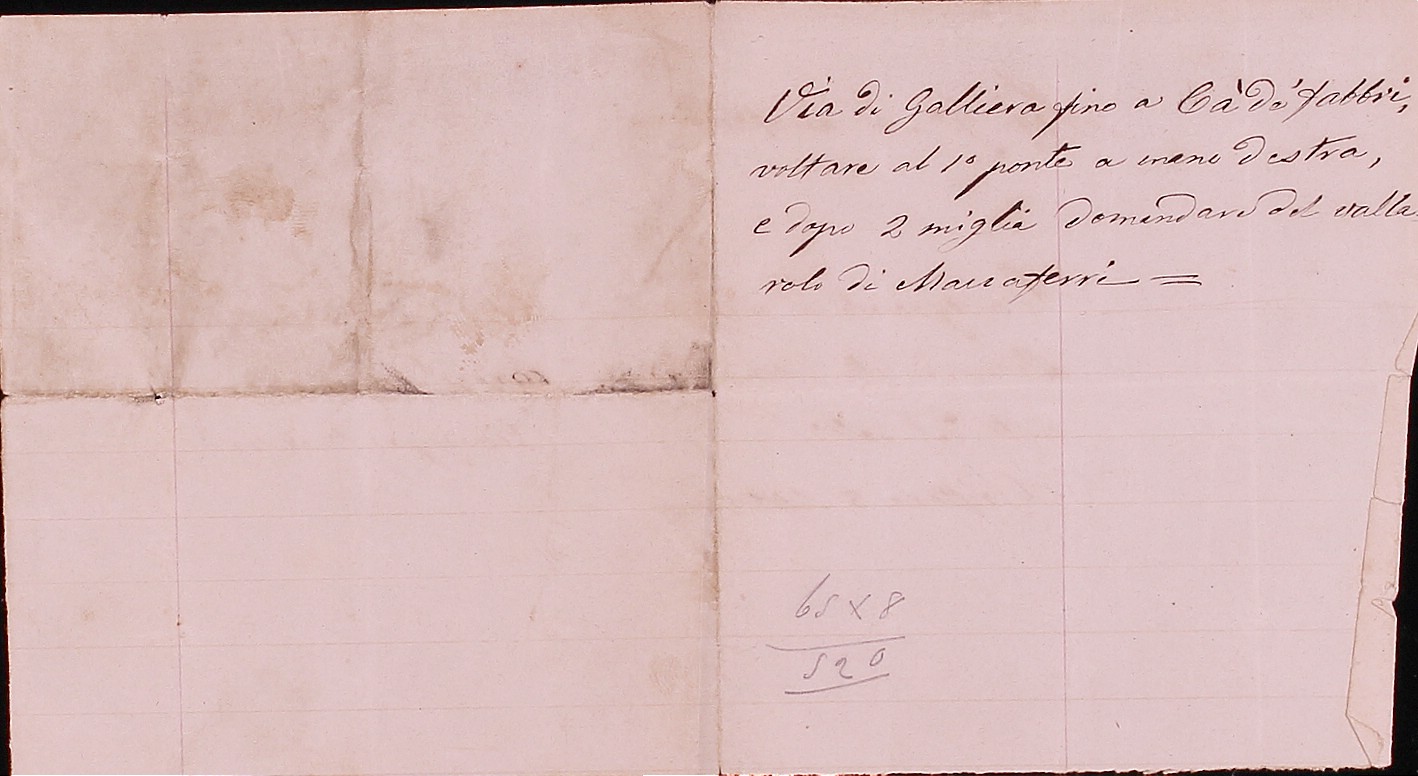 Via di Galliera fino a Cà de' fabbri,
voltare al 1° ponte a mano destra,
e dopo 2 miglia domandare del valla
rolo di Massaferri =
65 x 8
520